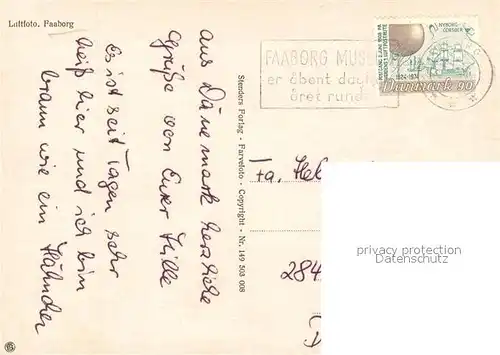 Luftfoto. Faaborg
Aus Dänemark herzliche
Grüße von Eurer Hille
Es ist seit Tagen sehr
heiß hier und ich bin
braun wie ein Hähnchen
Stenders Forlag - Farvefoto - Copyright - Nr. 149 503 008
FAABORG MUSEUM
er åbent daglig
året rundt
NYBORG-
CORSØER
1824-1974
Danmark 90
Fa. Hel
284
privacy protection
Datenschutz